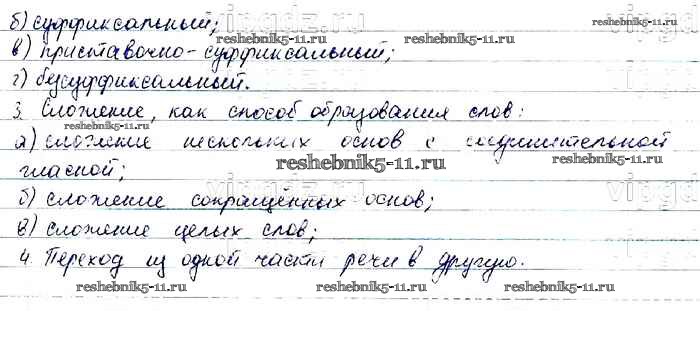 б) суффиксальный;
в) приставочно-суффиксальный;
г) бессуффиксальный.
3. Сложение, как способ образования слов:
а) сложение нескольких основ с соединительной
гласной;
б) сложение сокращённых основ;
в) сложение целых слов;
4. Переход из одной части речи в другую.
reshebnik5-11.ru
reshebnik5-11.ru
reshebnik5-11.ru
reshebnik5-11.ru
reshebnik5-11.ru
reshebnik5-11.ru
reshebnik5-11.ru
reshebnik5-11.ru
reshebnik5-11.ru
reshebnik5-11.ru